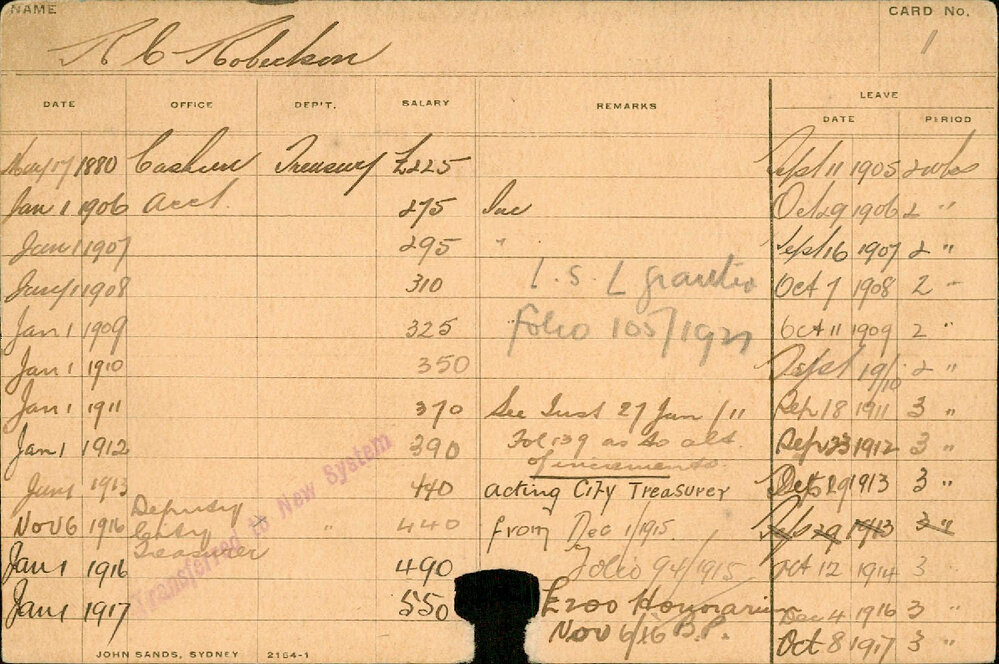 NAME R C Robertson CARD No. 1
DATE OFFICE DEP'T. SALARY REMARKS LEAVE
DATE PERIOD
May 17 1880 Cashier Treasury £225 Sept 11 1905 2 wks
Jan 1 1906 Acct. 275 Inc Oct 29 1906 2 "
Jan 1 1907 295 " Sept 16 1907 2 "
Jany 1 1908 310 L.S.L granted Oct 7 1908 2 "
Jan 1 1909 325 Folio 105/1921 Oct 11 1909 2 "
Jan 1 1910 350 Sept 19/10 2 "
Jan 1 1911 370 See Inst 27 Jan /11 Sep 18 1911 3 "
Jan 1 1912 390 Fol 139 as to alt. Sep 23 1912 3 "
of increments.
Jan 1 1913 440 Acting City Treasurer 1913 3 "
Nov 6 1916 Deputy City Treasurer " 440 from Dec 1/1915. Sep 29 1913 3 "
Jan 1 1916 490 Folio 94/1915 Oct 12 1914 3
Jan 1 1917 550 £200 Honorarium Dec 4 1916 3 "
Nov 6/16 B.P. Oct 8 1917 3 "
Transferred to New System
JOHN SANDS, SYDNEY 2154-1